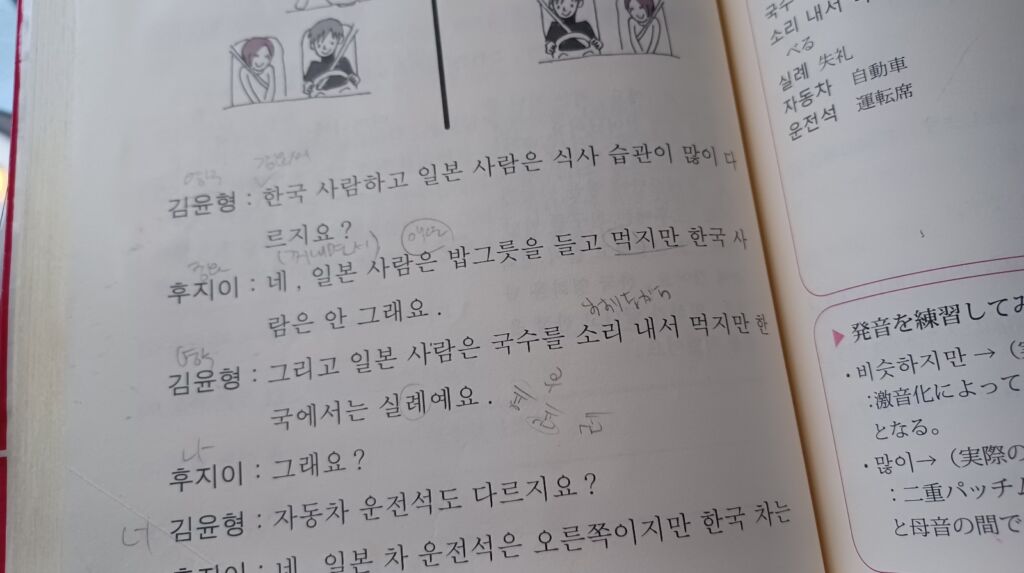 김윤형 : 한국 사람하고 일본 사람은 식사 습관이 많이 다
르지요?
후지이 : 네, 일본 사람은 밥그릇을 들고 먹지만 한국 사
람은 안 그래요.
김윤형 : 그리고 일본 사람은 국수를 소리 내서 먹지만 한
국에서는 실례예요.
후지이 : 그래요?
너
김윤형 : 자동차 운전석도 다르지요?
후지이 : 네, 일본 차 운전석은 오른쪽이지만 한국 차는
국수
소리 내서
べる
실례 失礼
자동차 自動車
운전석 運転席
▶ 発音を練習してみ
・비슷하지만 → (実
:激音化によって
となる。
・많이→ (実際の
:二重パッチム
と母音の間で